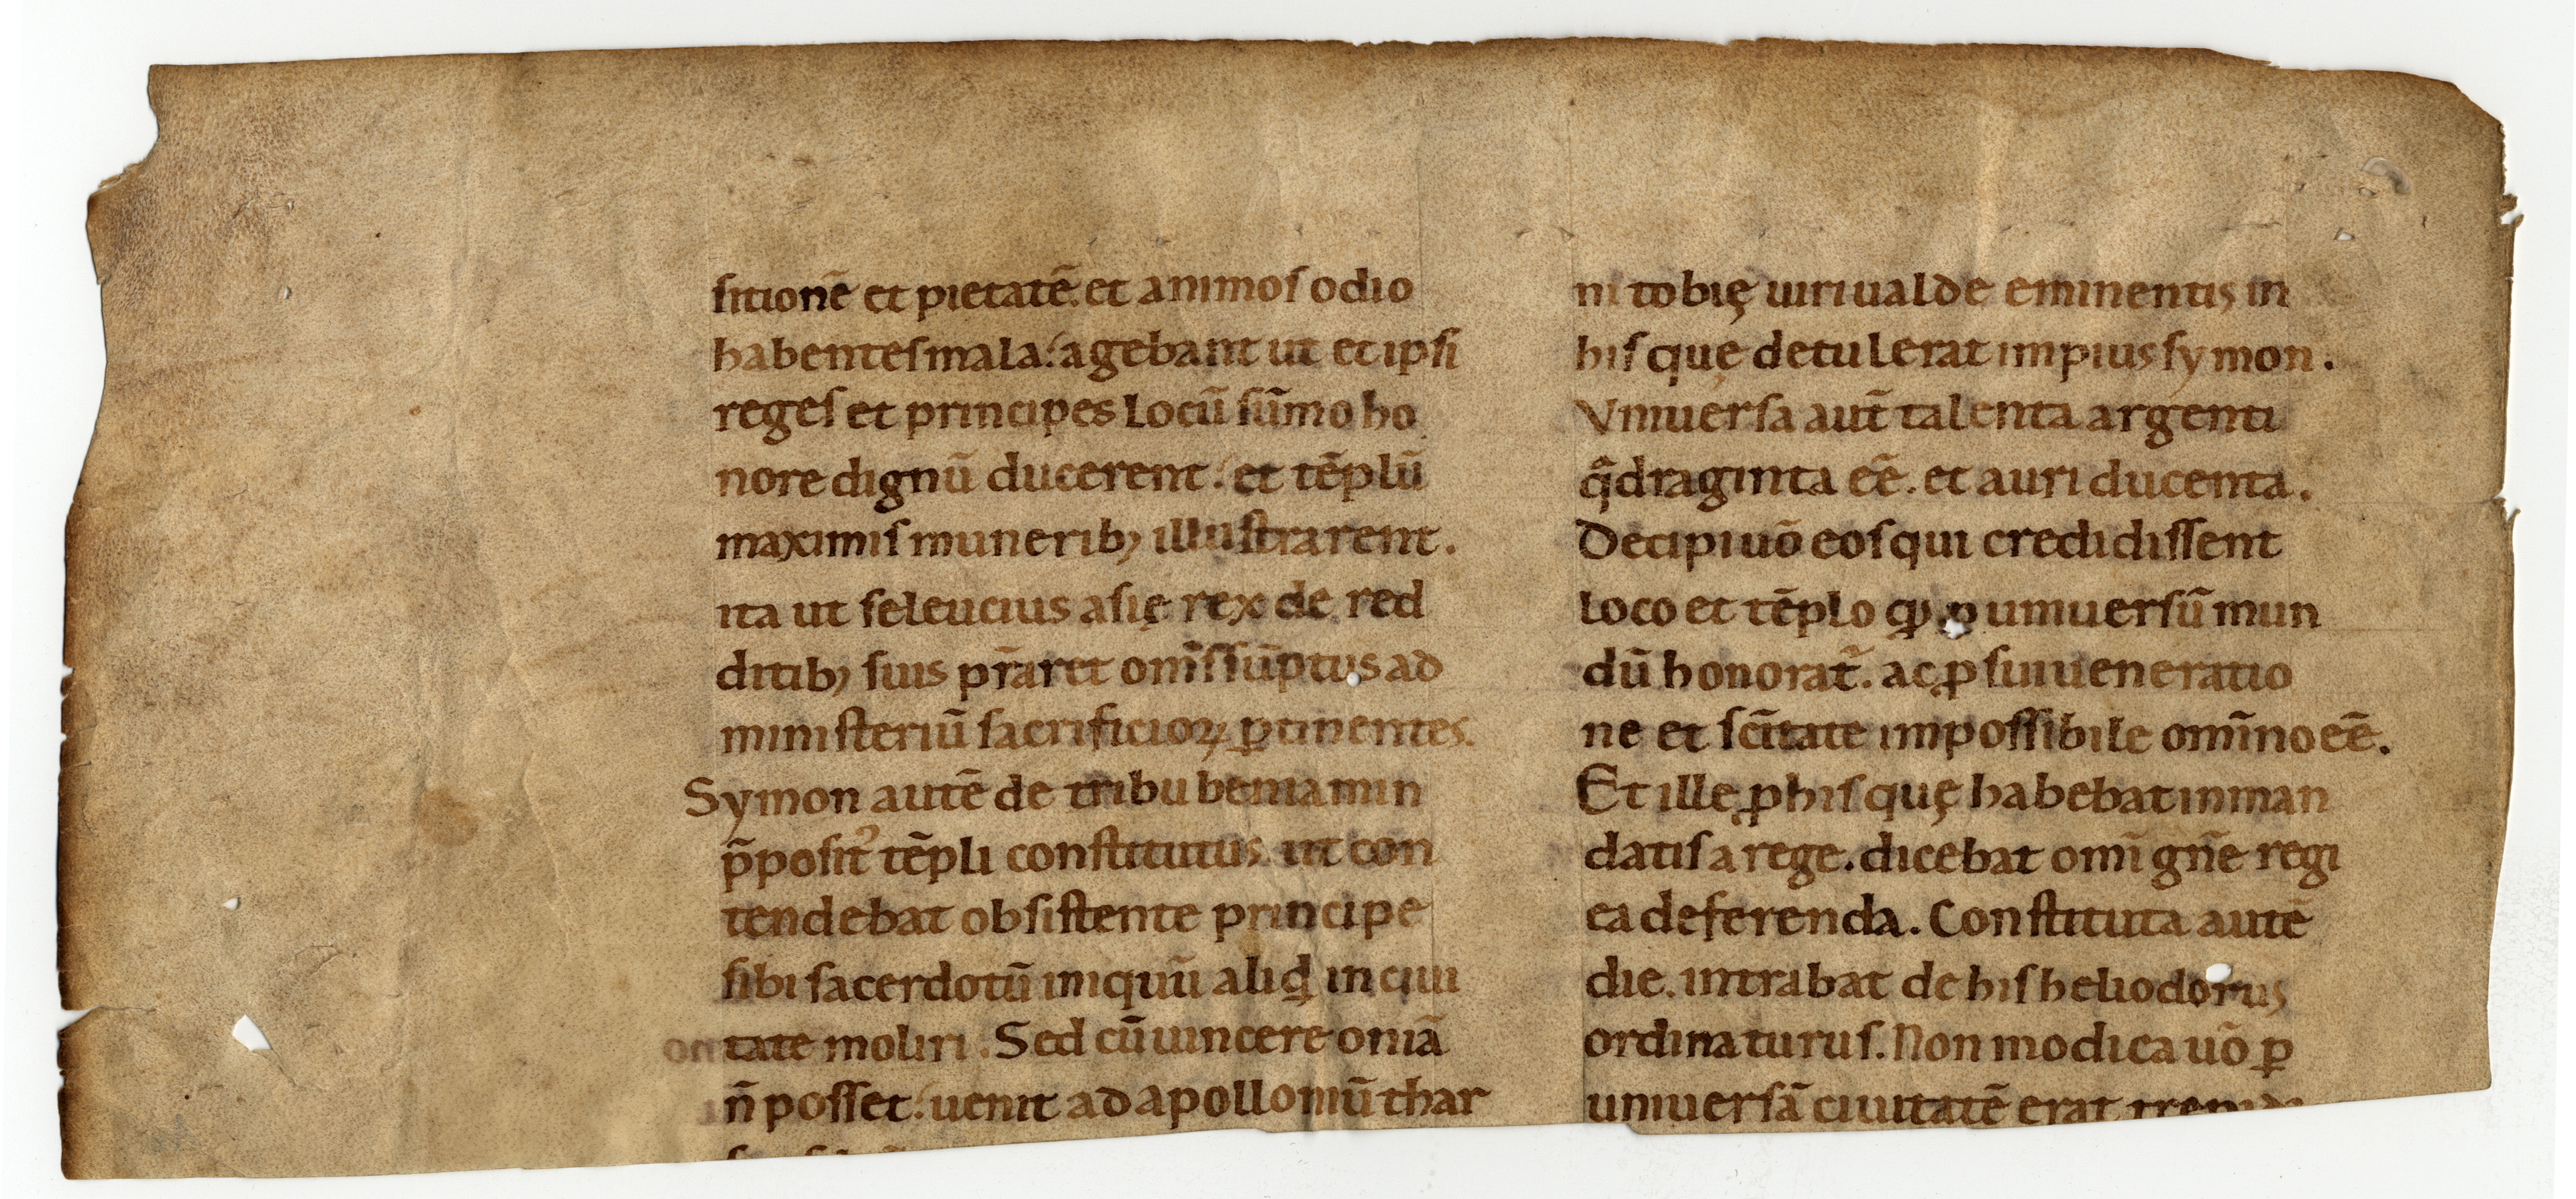 sitionē et pietatē. et animos odio
habentes mala: agebant ut et ipsi
reges et principes locū sūmo ho
nore dignū ducerent: et tēplū
maximis munerib; illustrarent.
ita ut seleucius asię rex de red
ditib; suis p̄raret om̄s sūptus ad
ministeriū sacrificioꝝ ꝑtinentes.
Symon autē de tribu beniamin
p̄posit᾽ tēpli constitutus ut con
tendebat obsistente principe
sibi sacerdotū iniquū aliqđ in ciui
tate moliri. Sed cū uincere oniā
n̄ posset: uenit ad apolloniū thar
ni tobię uiri ualde eminentis in
his quę detulerat impius symon.
Vniuersa aut̄ talenta argenti
qͣdraginta eē. et auri ducenta.
Decipi uō eos qui credidissent
loco et tēplo qđ ꝑ uniuersū mun
dū honorat᷑. ac ꝓ sui ueneratio
ne et sc̄itate impossibile om̄ino eē.
Et ille ꝓ his quę habebat in man
datis a rege. dicebat om̄i gn̄e regi
ea deferenda. Constituta autē
die. intrabat de his heliodorus
ordinaturus. Non modica uō ꝑ
uniuersā ciuitatē erat trepida